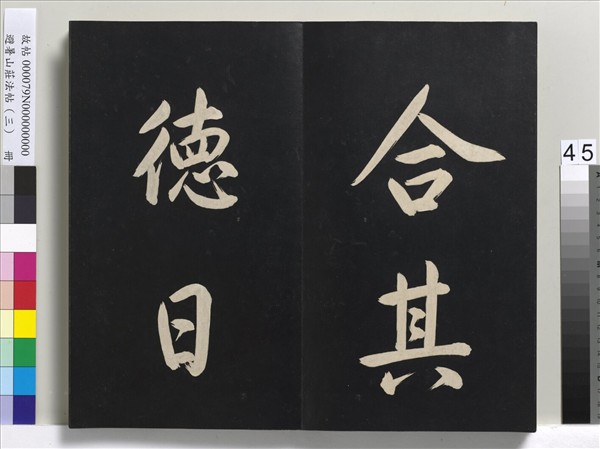 合其
德日
故帖 000079N000000000
避暑山莊法帖（三） 冊
45